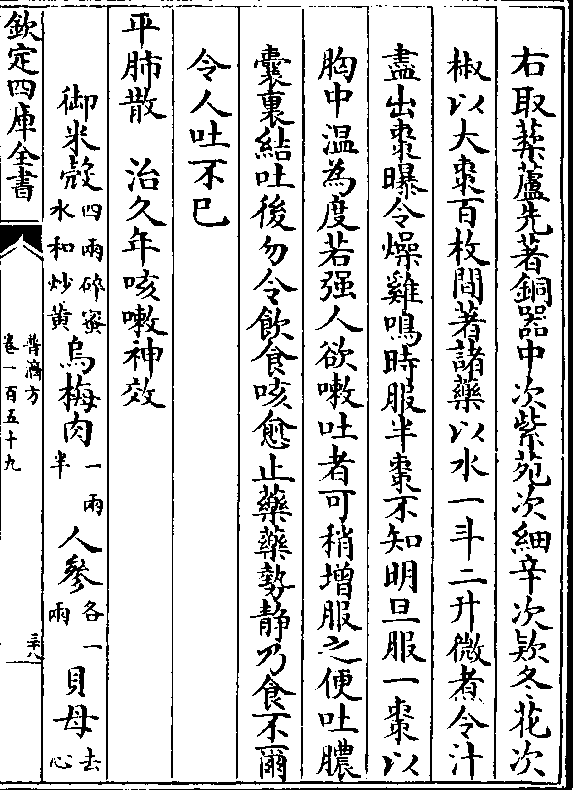 右取藜蘆先著銅器中次紫菀次細辛次欵冬花次
椒以大棗百枚間著諸藥以水一斗二升微煮令汁
盡出棗曝令燥雞鳴時服半棗不知明旦服一棗以
胸中温為度若强人欲嗽吐者可稍增服之便吐膿
囊裏結吐後勿令飲食咳愈止藥藥勢静乃食不爾
令人吐不已
平肺散　治久年咳嗽神效
御米殻四兩碎蜜水和炒黄　烏梅肉一兩半　人參各一兩　貝母去心
欽定四庫全書
普濟方
卷一百五十九
三十八